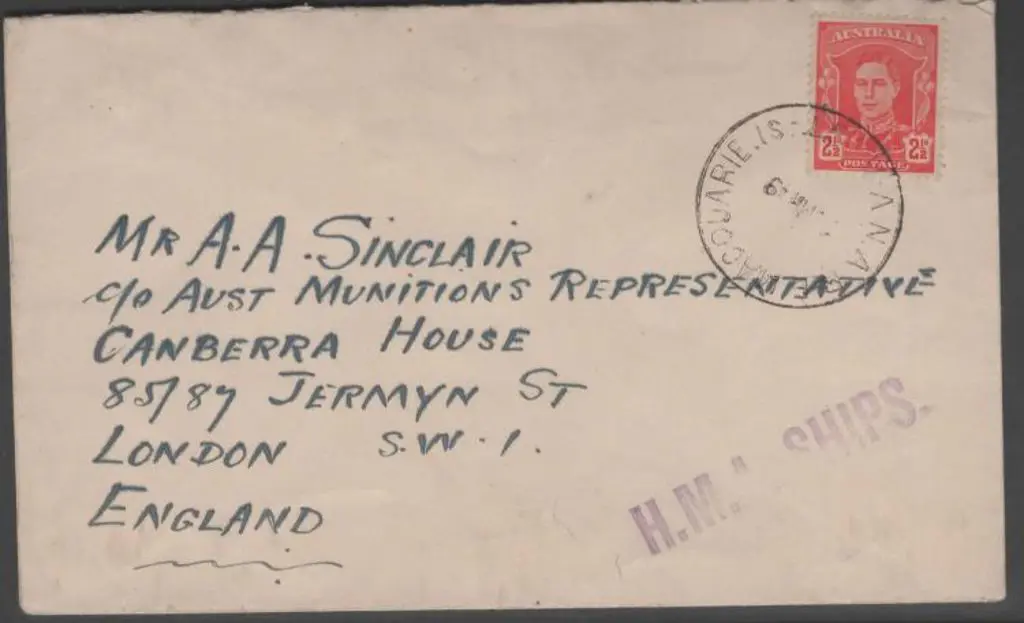 AUSTRALIA
2½ᴰ 2½ᴰ
POSTAGE
MACQUARIE.IS
A.N.A.R.E
MR A.A. SINCLAIR
c/o AUST MUNITIONS REPRESENTATIVE
CANBERRA HOUSE
85/87 JERMYN ST
LONDON S.W.1.
ENGLAND
H.M.A. SHIPS.